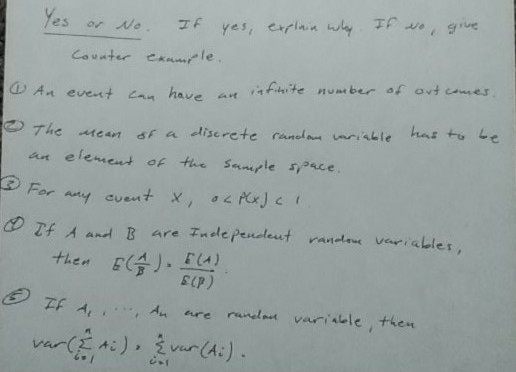 Yes or No. If yes, explain why. If no, give
Counter example.
① An event can have an infinite number of outcomes.
② The mean of a discrete random variable has to be
an element of the sample space.
③ For any event X, 0 < P(X) < 1
④ If A and B are Independent random variables,
then E(A/B) = E(A)/E(B).
⑤ If A₁, ..., An are random variable, then
var(∑ⁿᵢ₌₁ Ai) = ∑ⁿᵢ₌₁ var(Ai).